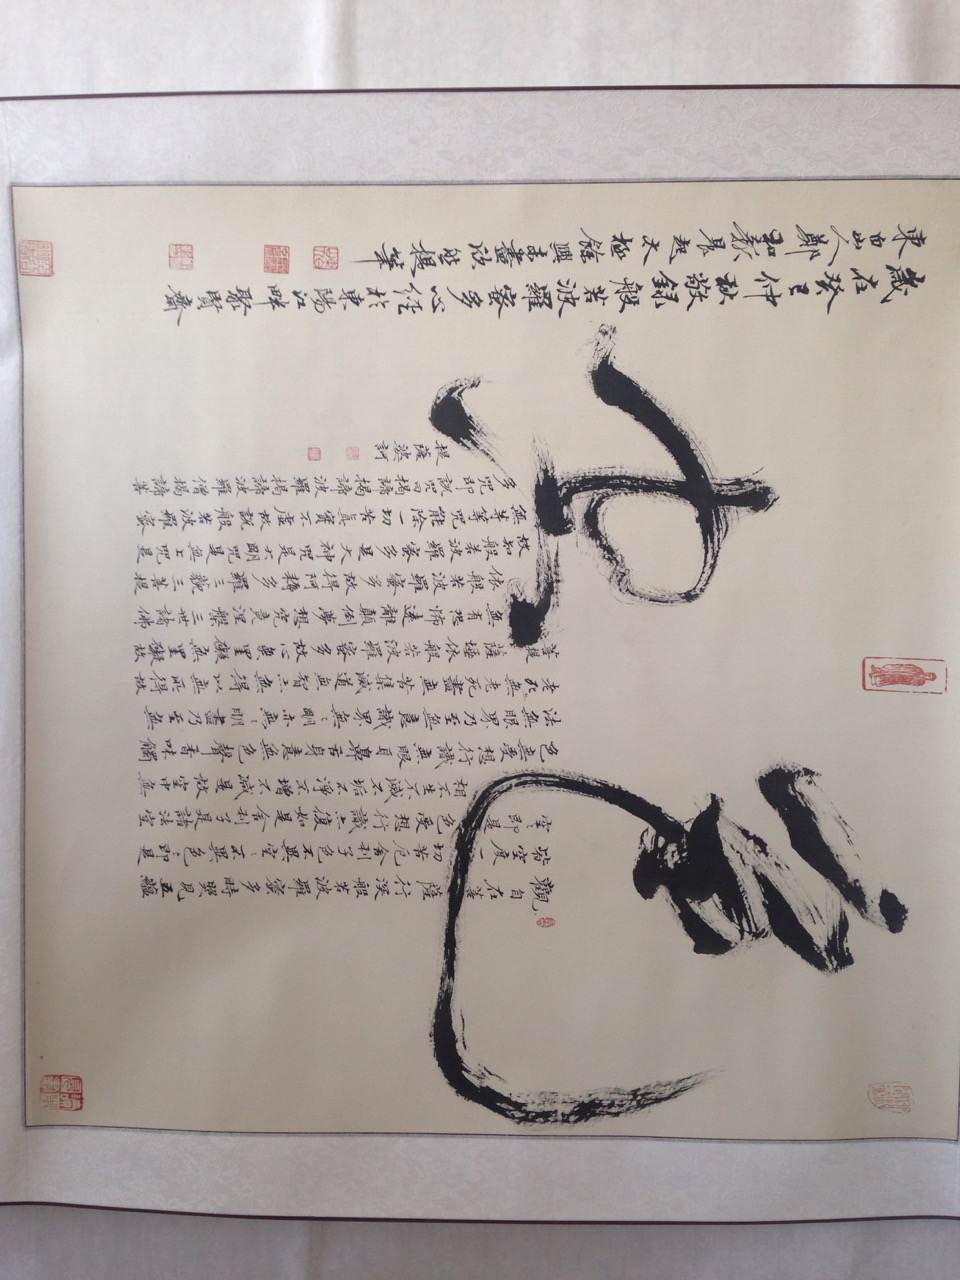 觀自在菩薩行深般若波羅蜜多時照見五蘊
皆空度一切苦厄舍利子色不異空空不異色色即是
空空即是色受想行識亦復如是舍利子是諸法空
相不生不滅不垢不淨不增不減是故空中無
色無受想行識無眼耳鼻舌身意無色聲香味觸
法無眼界乃至無意識界無無明亦無無明盡乃至無
老死亦無老死盡無苦集滅道無智亦無得以無所得故
菩提薩埵依般若波羅蜜多故心無罣礙無罣礙故
無有恐怖遠離顛倒夢想究竟涅槃三世諸佛
依般若波羅蜜多故得阿耨多羅三藐三菩提
故知般若波羅蜜多是大神咒是大明咒是無上咒是
無等等咒能除一切苦真實不虛故說般若波羅蜜
多咒即說咒曰揭諦揭諦波羅揭諦波羅僧揭諦菩
提薩婆訶
歲在癸巳仲秋敬錄般若波羅蜜多心經於東陽江畔聚賢齋
東白山人鄭晨起太極餘興未盡欣然提筆